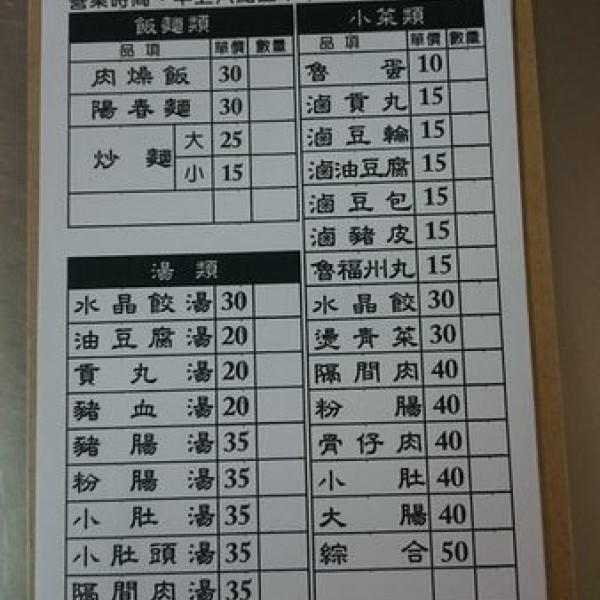 飯麵類
品項 單價 數量
肉燥飯 30
陽春麵 30
炒麵 大 25
小 15
湯類
水晶餃湯 30
油豆腐湯 20
貢丸湯 20
豬血湯 20
豬腸湯 35
粉腸湯 35
小肚湯 35
小肚頭湯 35
隔間肉湯 35
小菜類
品項 單價 數量
魯蛋 10
滷貢丸 15
滷豆輪 15
滷油豆腐 15
滷豆包 15
滷豬皮 15
魯福州丸 15
水晶餃 30
燙青菜 30
隔間肉 40
粉腸 40
骨仔肉 40
小肚 40
大腸 40
綜合 50